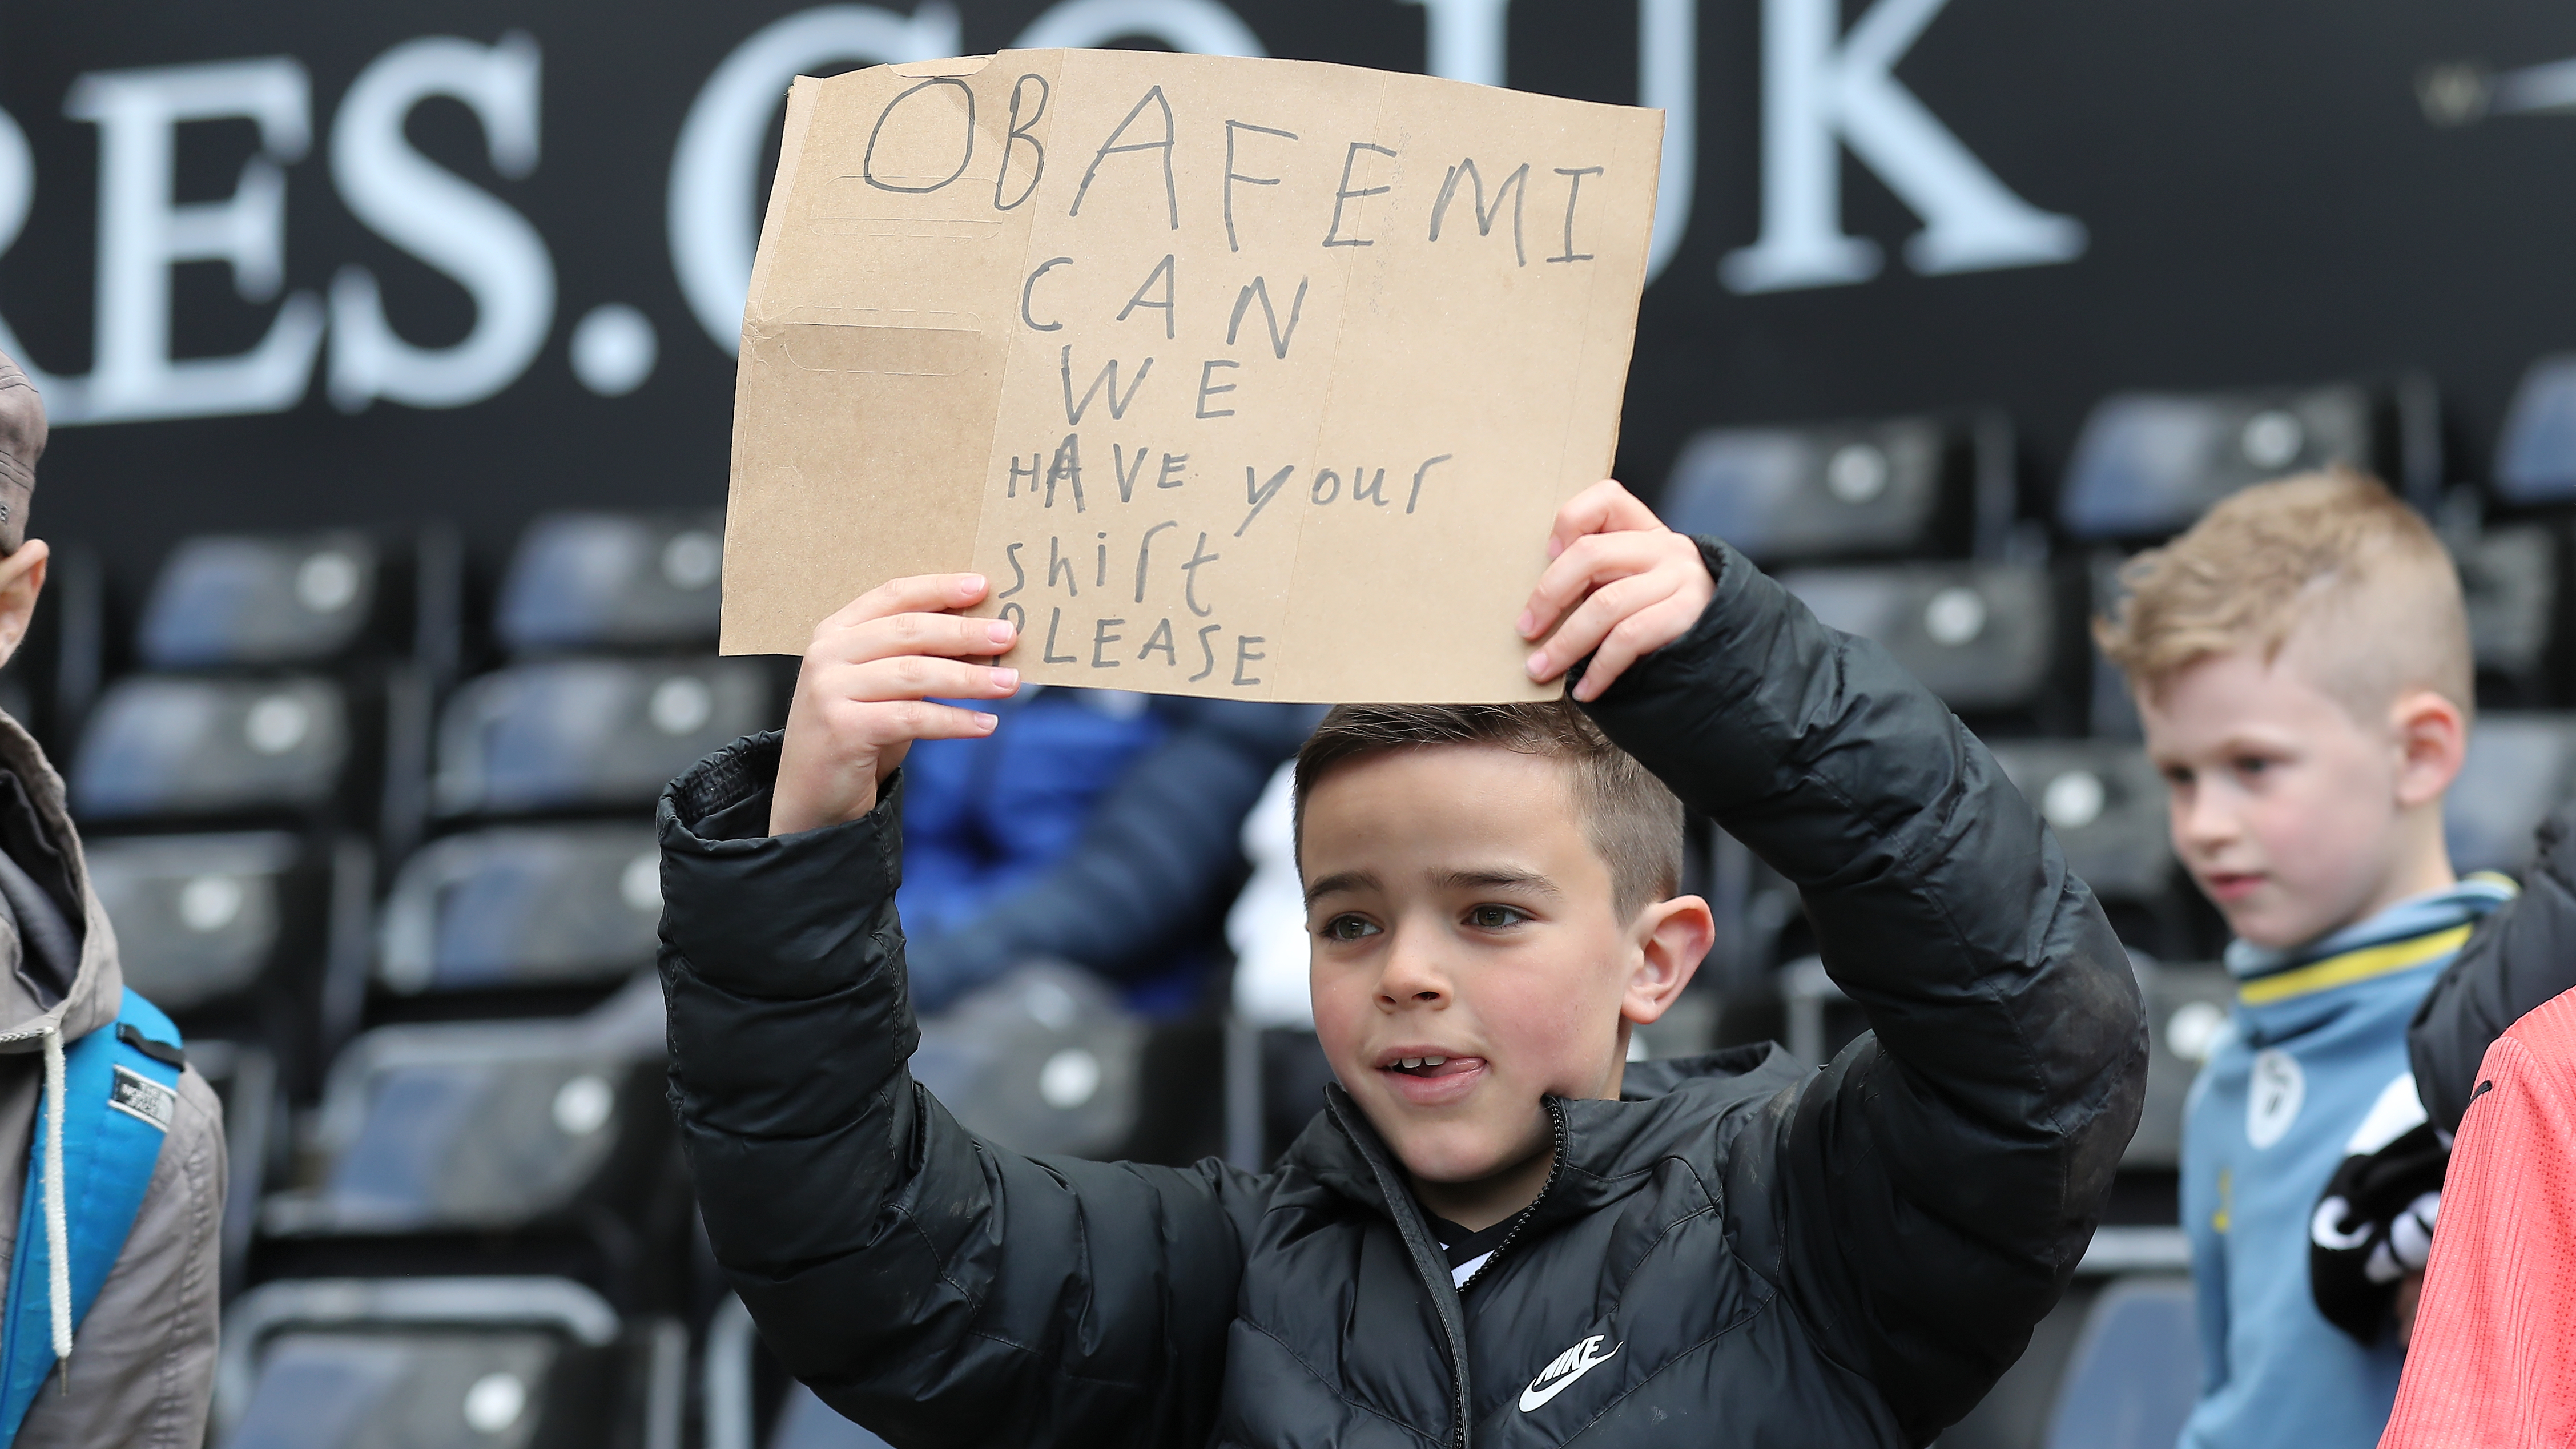 RES.CO.UK
OBAFEMI
CAN
WE
HAVE your
shirt
PLEASE
THE
NORTH FACE
NIKE